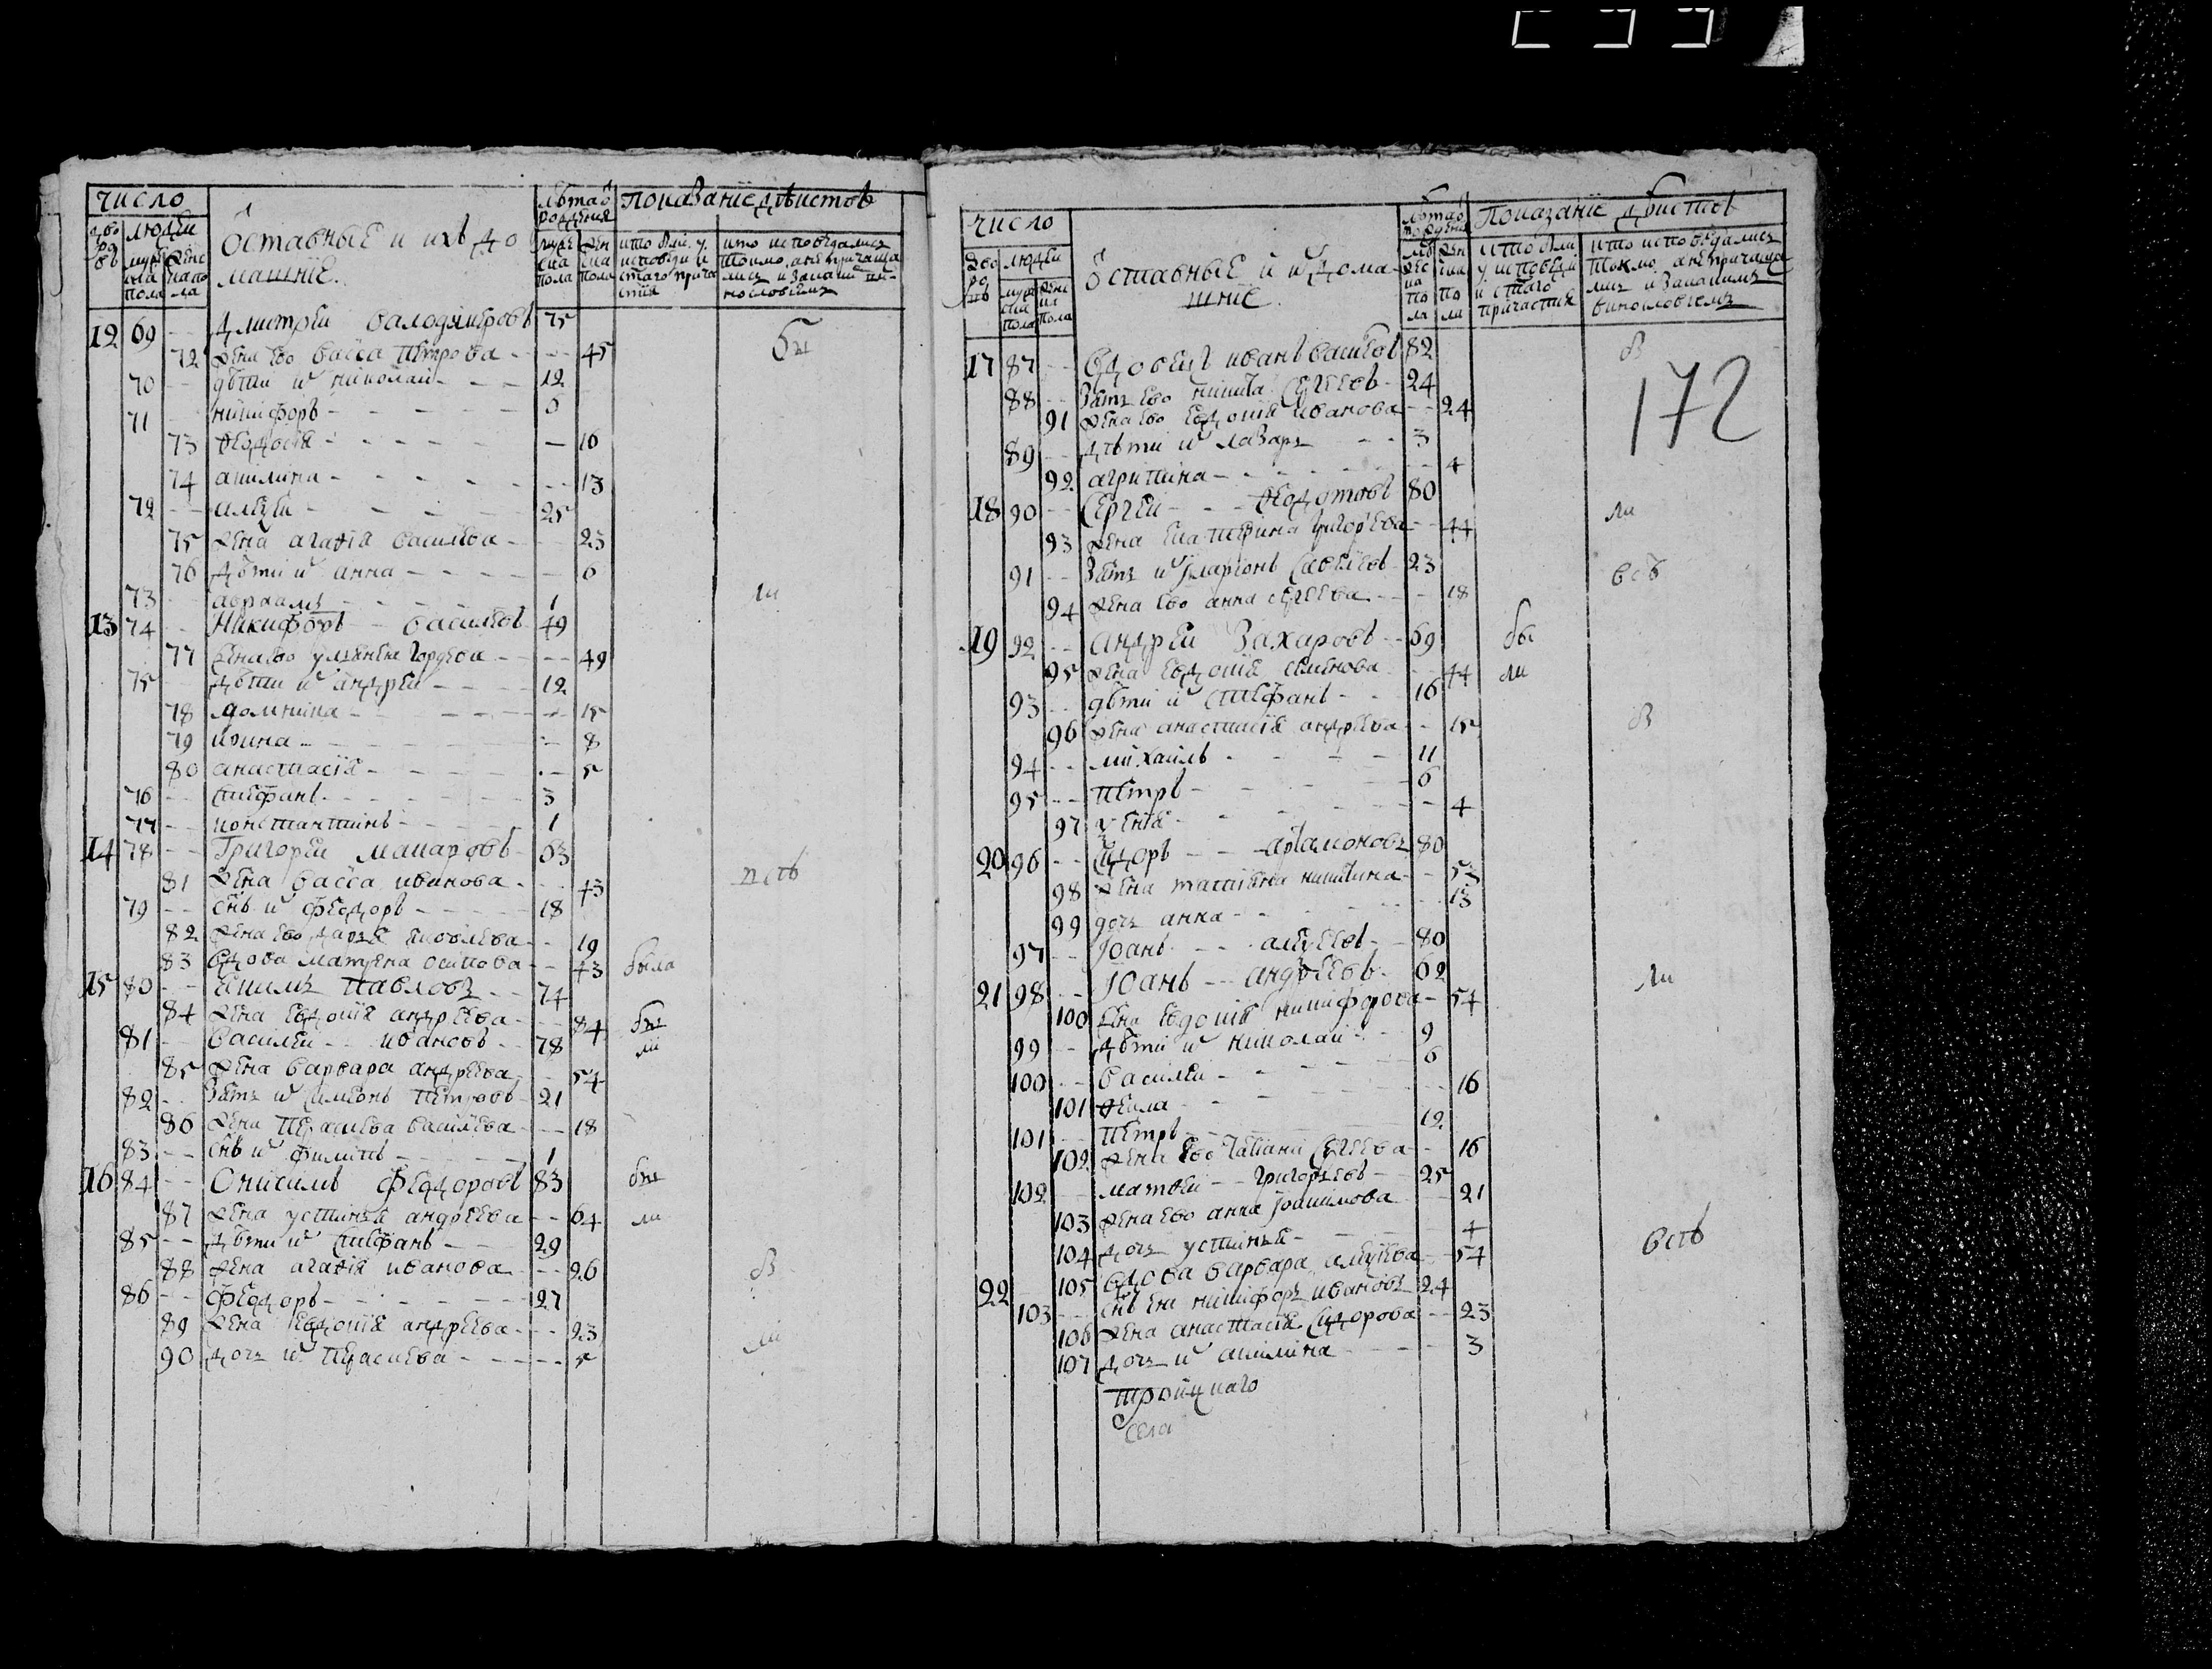 число
Оставные и ихъ до
машние
лѣта ѿ
рождения
показание дѣистов
дво
ро
въ
людеи
муже
ска
пола
женс
ка по
ла
муже
ска
пола
жен
ска
пола
кто были у
исповеди и
стаго прича
стия
кто исповедались
токмо, а не прича
лись и за каким ви
нословием
12 69 -- Дмитреи валодямеровъ 75
бы
72 жена ево васса петрова -- 45
70 -- дѣти их николаи -- 12
71 никифоръ -- 6
73 ѳедосия -- 16
74 акилина -- 13
72 -- алеѯеи -- 25
75 жена агаѳия василева -- 23
76 дѣти их анна -- 6
73 авраамъ -- 1
ли
13 74 -- Никифоръ василев 49
77 жена ево ульянея гордеева -- 49
75 дѣти их андреи -- 12
78 домникия -- 15
79 ирина -- 8
80 анастасия -- 5
76 -- стефанъ -- 3
77 -- константинъ -- 1
14 78 -- Григореи макаровъ 63
81 жена васса иванова -- 43
всѣ
79 -- снъ их феодоръ -- 18
82 жена ево дарья яковлева -- 19
83 вдова матрена осипова -- 43 была
15 80 -- екимъ павловъ -- 74
84 жена евдокия андреева -- 84 бы
81 -- василеи -- ивановъ -- 78 ли
85 жена варвара андреева -- 54
82 -- зять их симеонъ петровъ 21
86 жена парасковья василева -- 18
83 -- снъ их филипъ -- 1
16 84 -- Онисимъ феодоровъ 83 бы
87 жена устинья андреева -- 64 ли
85 -- дѣти их стефанъ -- 29
88 жена агаѳия иванова -- 26
в
86 -- феодоръ -- 27
89 жена евдокия андреева -- 23
90 дочь их парасковья -- 5
ли
число
Оставные и их дома
шние
лѣта ѿ
рождения
показание дѣистов
дво
ро
въ
людеи
муже
ска
пола
женс
ка
пола
му
жес
ка
по
ла
жен
ска
по
ла
кто были
у исповеди
и стаго
причастия
кто исповедались
токмо а не прича
лись и за каким
винословием
172
17 87 -- вдовецъ иванъ василев 82
в
88 -- зять ево никита сергеевъ 24
91 жена ево евдокия иванова -- 24
89 -- дѣти их лазарь -- 3
92 агрипина -- 4
18 90 -- Сергеи -- ѳедотовъ 80
ли
93 жена екатерина григорева -- 44
91 -- зять их иларионъ савелевъ 23
всѣ
94 жена ево анна сергеева -- 18
19 92 -- андреи захаровъ -- 69 бы
95 жена евдокия семенова -- 44 ли
93 -- дѣти их стефанъ -- 16
96 жена анастасия андреева -- 15
в
94 -- михаилъ -- 11
95 -- петръ -- 6
97 ѯения -- 4
20 96 -- сидоръ -- артамоновъ 80
98 жена татияна никитина -- 53
99 дочь анна -- 13
97 -- иоанъ -- алеѯеевъ -- 80
21 98 -- иоанъ -- андреевъ -- 62
ли
100 жена евдокия никифорова -- 54
99 -- дѣти их николаи -- 9
100 -- василеи -- 6
101 ѳекла -- 16
101 -- петръ -- 12
102 жена ево татиана сергеева -- 16
102 -- матвеи -- григорьевъ -- 25
103 жена ево анна иоакимова -- 21
104 дочь устинья -- 4
22 105 вдова варвара алеѯеева -- 54
всѣ
103 -- снъ ея никифоръ ивановъ 24
106 жена анастасия сидорова -- 23
107 дочь их акилина -- 3
троицкаго
села